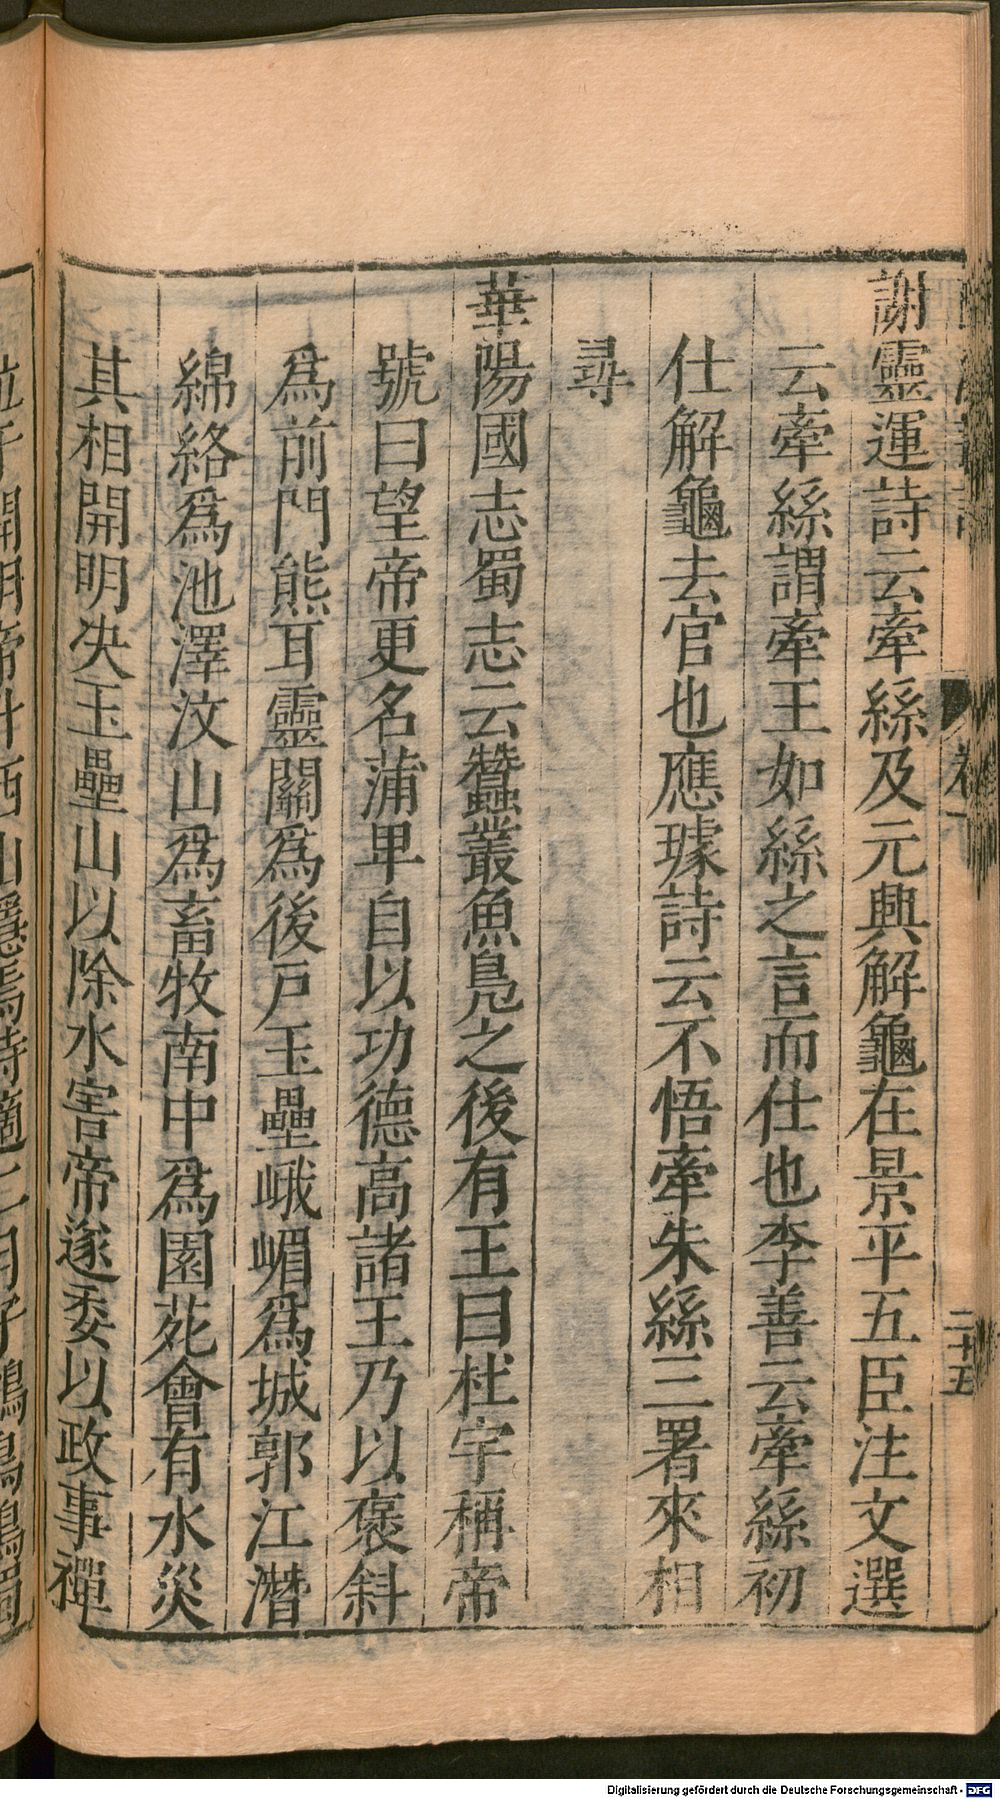 卷下
二十五
謝靈運詩云牽絲及元興解龜在景平五臣注文選
云牽絲謂牽王如絲之言而仕也李善云牽絲初
仕解龜去官也應璩詩云不悟牽朱絲三署來相
尋
華陽國志蜀志云蠶叢魚鳧之後有王曰杜宇稱帝
號曰望帝更名蒲卑自以功德高諸王乃以褒斜
爲前門熊耳靈關爲後戸玉壘峨嵋爲城郭江潛
綿絡爲池澤汶山爲畜牧南中爲園苑會有水災
其相開明决玉壘山以除水害帝遂委以政事禪
開明帝升西山隱焉時適二月子鵑鳥鳴蜀
Digitalisierung gefördert durch die Deutsche Forschungsgemeinschaft - DFG